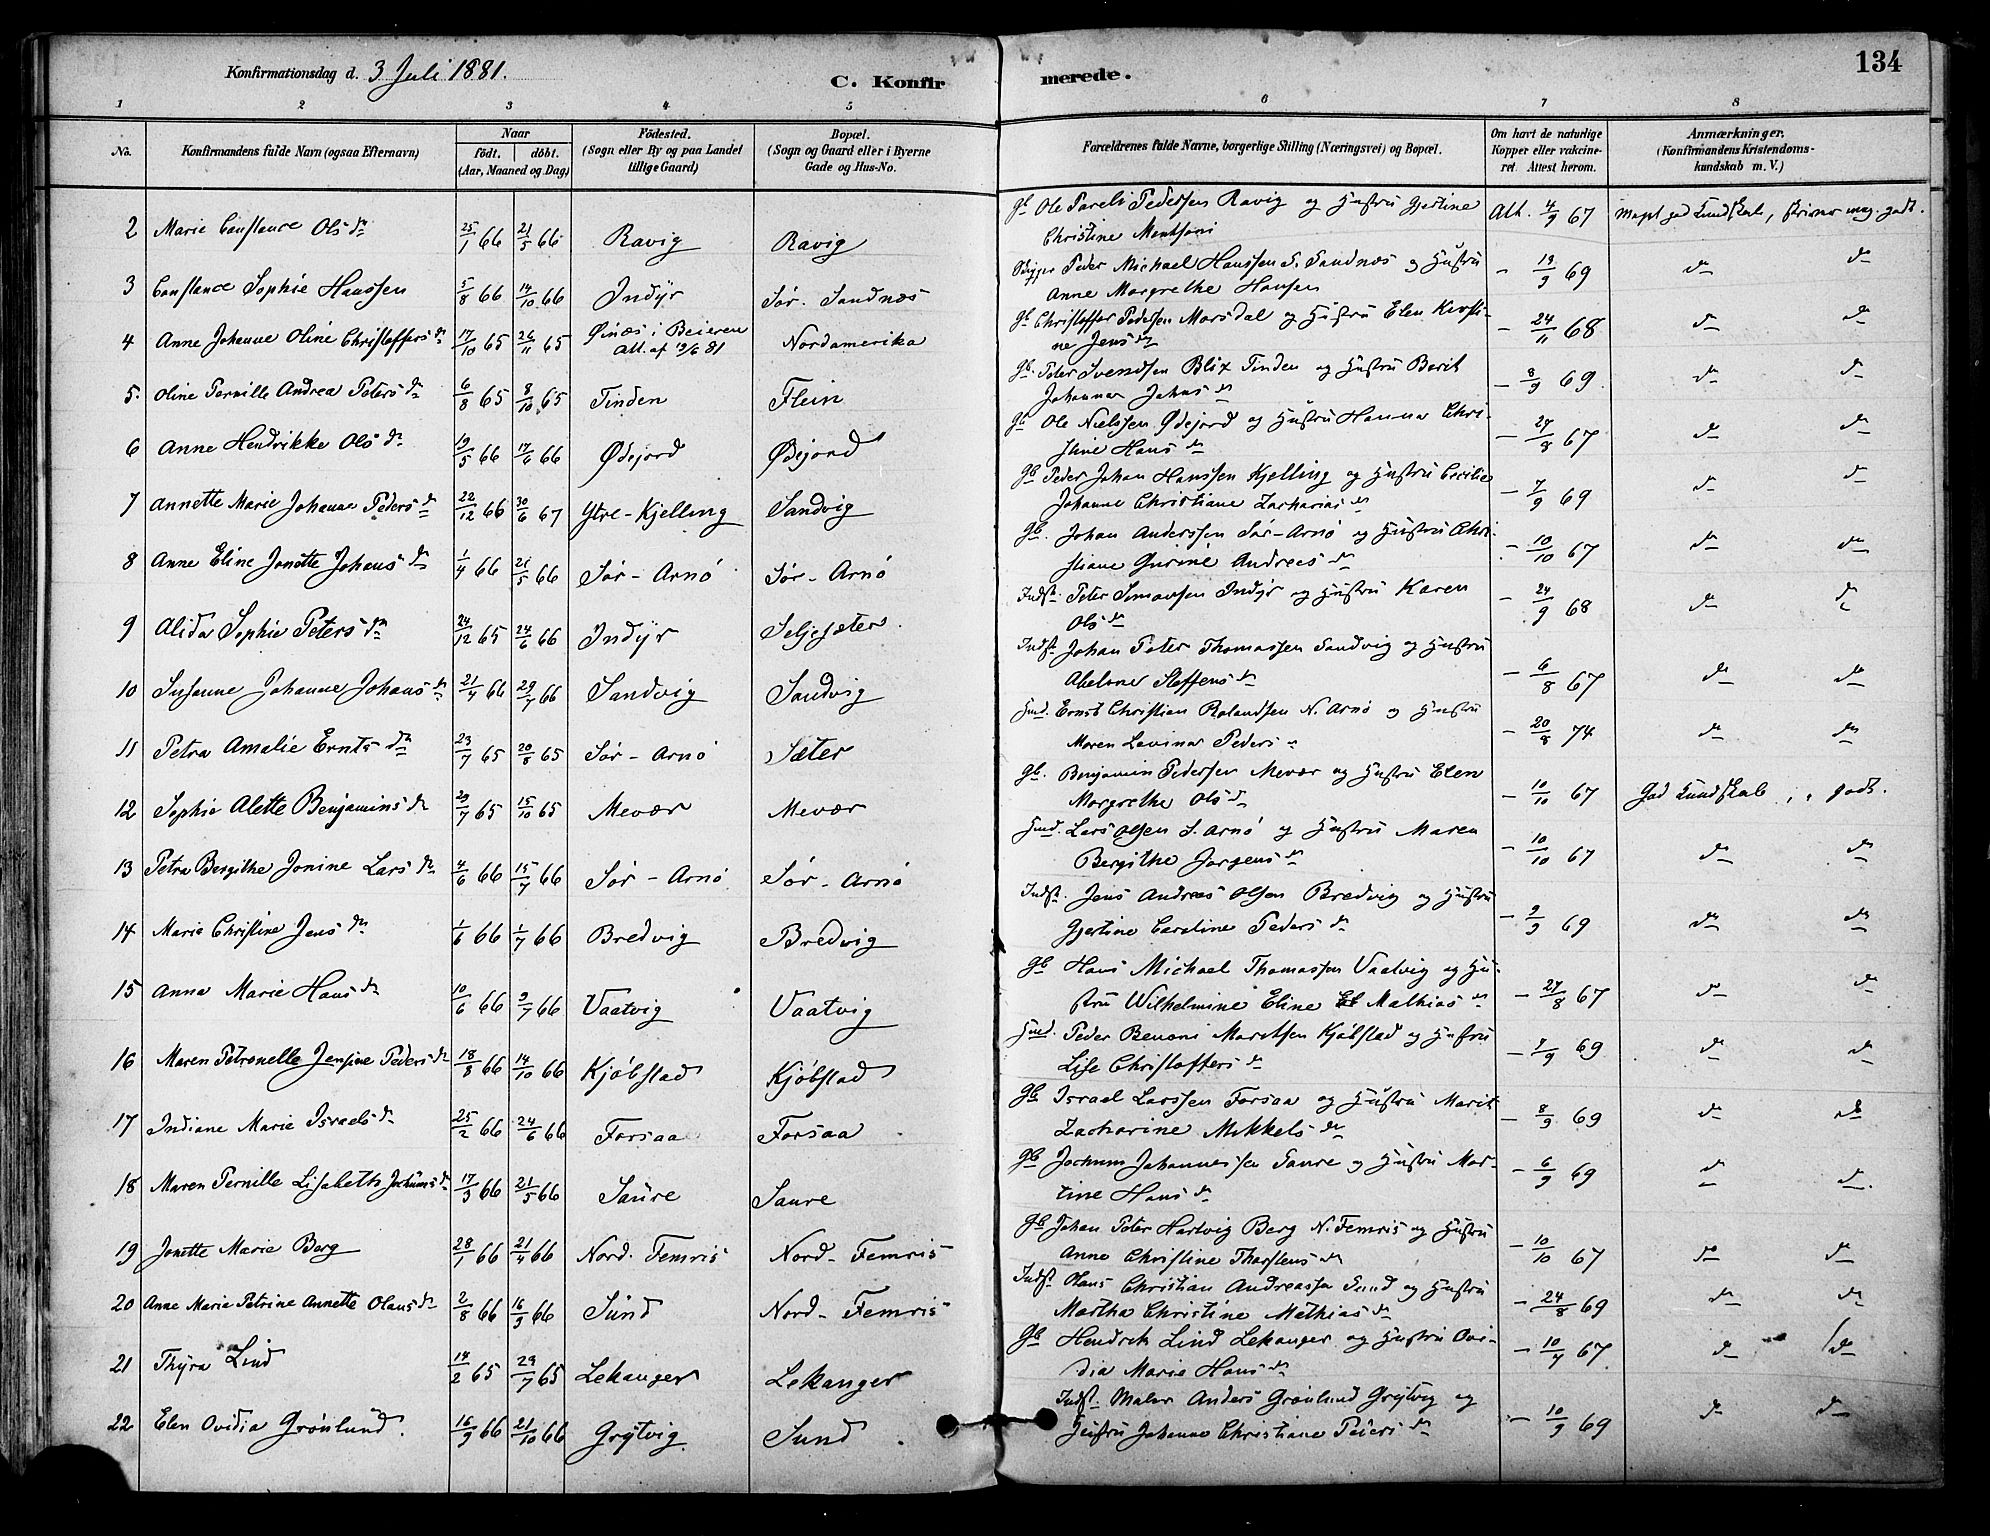 134
Konfirmationsdag d. 3 Juli 1881.
C. Konfirmerede.
1 2 3 4 5 6 7 8
No.
Konfirmandens fulde Navn (ogsaa Efternavn)
Naar
født. døbt.
(Aar, Maaned og Dag)
Födested.
(Sogn eller By og paa Landet tillige Gaard)
Bopæl.
(Sogn og Gaard eller i Byerne Gade og Hus-No.
Forældrenes fulde Navne, borgerlige Stilling (Næringsvei) og Bopæl.
Om havt de naturlige Kopper eller vakcineret. Attest herom.
Anmærkninger.
(Konfirmandens Kristendomskundskab m. V.)
2 Marie Constance Olsdn 25/1 66 21/5 66 Ravig Ravig Gb Ole Pareli Pedersen Ravig og Hustru Gjertine Att. 4/9 67 Kundskab,
Christine
3 Constance Sophie Hanssen 5/8 66 14/10 66 Indyr Sør. Sandnæs Peder Michael Hanssen S. Sandnæs og Hustru - 19/9 69 dn dn
Anne Margrethe Hansen
4 Anne Johanne Oline Christoffersdn 17/10 65 26/11 65 Øinæs i Beieren Nordamerika Gb Christoffer Pedersen Marsdal og Hustru Elen Kirsti- - 24/11 68 dn dn
Att. af 19/6 81 ne Jensdn
5. Oline Pernille Andrea Petersdn 6/8 65 8/10 65 Tinden Flein Gb. Peter Svendsen Blix Tinden og Hustru Berit - 8/9 69. dn dn
Johanna Johnsdn
6 Anne Hendrikke Olsdn 19/5 66 17/6 66 Ødejord ØDejord Gb Ole Nielssen Ødejord og Hustru Hanna Chri- - 27/8 67 dn dn
stine Hansdn
7 Annette Marie Johanne Pedersdn 22/12 66 30/6 67 Ytre-Kjelling Sandvig Gb Peder Johan Hanssen Kjelling og Hustru Cecilie - 7/9 69 dn dn
Johanne Christiane Zachariasdn
8 Anne Eline Jonette Johansdn 1/4 66 21/5 66 Sør-Arnø Sør-Arnø Gb. Johan Anderssen Sør-Arnø og Hustru Chri- - 10/10 67 dn dn
stiane Gurine Andreasdn
9 Alida Sophie Petersdn 24/12 65 24/6 66 Indyr Seljesæter. Indst. Peter Simonsen Indyr og Hustru Karen - 24/9 68 dn dn
Olsdn
10 Susanne Johanne Johansdn 21/4 66 29/7 66 Sandvig Sandvig Indst. Johan Peter Thomassen Sandvig og Hustru - 6/8 67 dn dn
Abelone Steffensdn
11 Petra Amalie Erntsdn 23/7 65 20/8 65 Sør-Arnø Sæter Hmd. Ernst Christian Rolandsen N. Arnø og Hustru - 20/8 74 dn dn
Maren Lovina Pedersdn
12 Sophie Alette Benjaminsdn 29/7 65 15/10 65 Mevær Mevær Gb. Benjamin Pedersen Mevær og Hustru Elen - 10/10 67 God Kundskab, " godt.
Margrethe Olsdn
13 Petra Bergithe Jonine Larsdn 4/6 66 15/7 66 Sør-Arnø Sør-Arnø Hmd. Lars Olsen S. Arnø og Hustru Maren - 10/10 67 dn dn
Bergithe Jørgensdn
14 Marie Christine Jensdn 1/6 66 1/7 66 Bredvig Bredvig Indst. Jens Andreas Olsen Bredvig og Hustru - 9/9 69 dn dn
Gjertine Caroline Pedersdn
15 Anna Marie Hansdn 10/6 66 9/7 66 Vaatvig Vaatvig Gb Hans Michael Thomassen Vaatvig og Hu- - 27/8 67 dn dn
stru Wilhelmine Eline Mathiasdn
16 Maren Petronelle Jensine Pedersdn 18/8 66 14/10 66 Kjøbstad Kjøbstad Hmd. Peder Benoni Maritsen Kjøbstad og Hustru - 7/9 69 dn dn
Lise Christoffersdn
17 Indiane Marie Israelsdn 25/2 66 24/6 66 Forsaa Forsaa Gb Israel Larssen Forsaa og Hustru Marit - 8/9 69 dn dn
Zacharine Mikkelsdn
18 Maren Pernille Lisabeth Jochumsdn 17/3 66 21/5 66 Saure Saure Gb Jochum Johannessen Saure og Hustru Mar- - 6/9 69 dn dn.
tine Hansdn
19 Jonette Marie Berg 28/1 66 21/4 66 Nord. Femris Nord-Femris Gb Johan Peter Hartvig Berg N. Femris og Hustru - 10/10 67 dn dn
Anne Christine Thorstensdn
20 Anne Marie Petrine Annette Olausdn 2/8 66 16/9 66 Sund Nord-Femris Indst. Olaus Christian Andreassen Sund og Hustru - 24/8 69 dn dn
Martha Christine Mathiasdn
21 Thyra Lind 14/2 65 29/7 65 Lekanger Lekanger Gb Hendrik Lind Lekanger og Hustru Ovi- - 10/7 67. dn dn
dia Marie Hansdn
22 Elen Ovidia Grønlund. 16/9 66 21/10 66 Grytvig. Sund. Indst. Maler Anders Grønlund Grytvig og - 10/9 69 dn dn
Hustru Johanne Christiane Petersdn